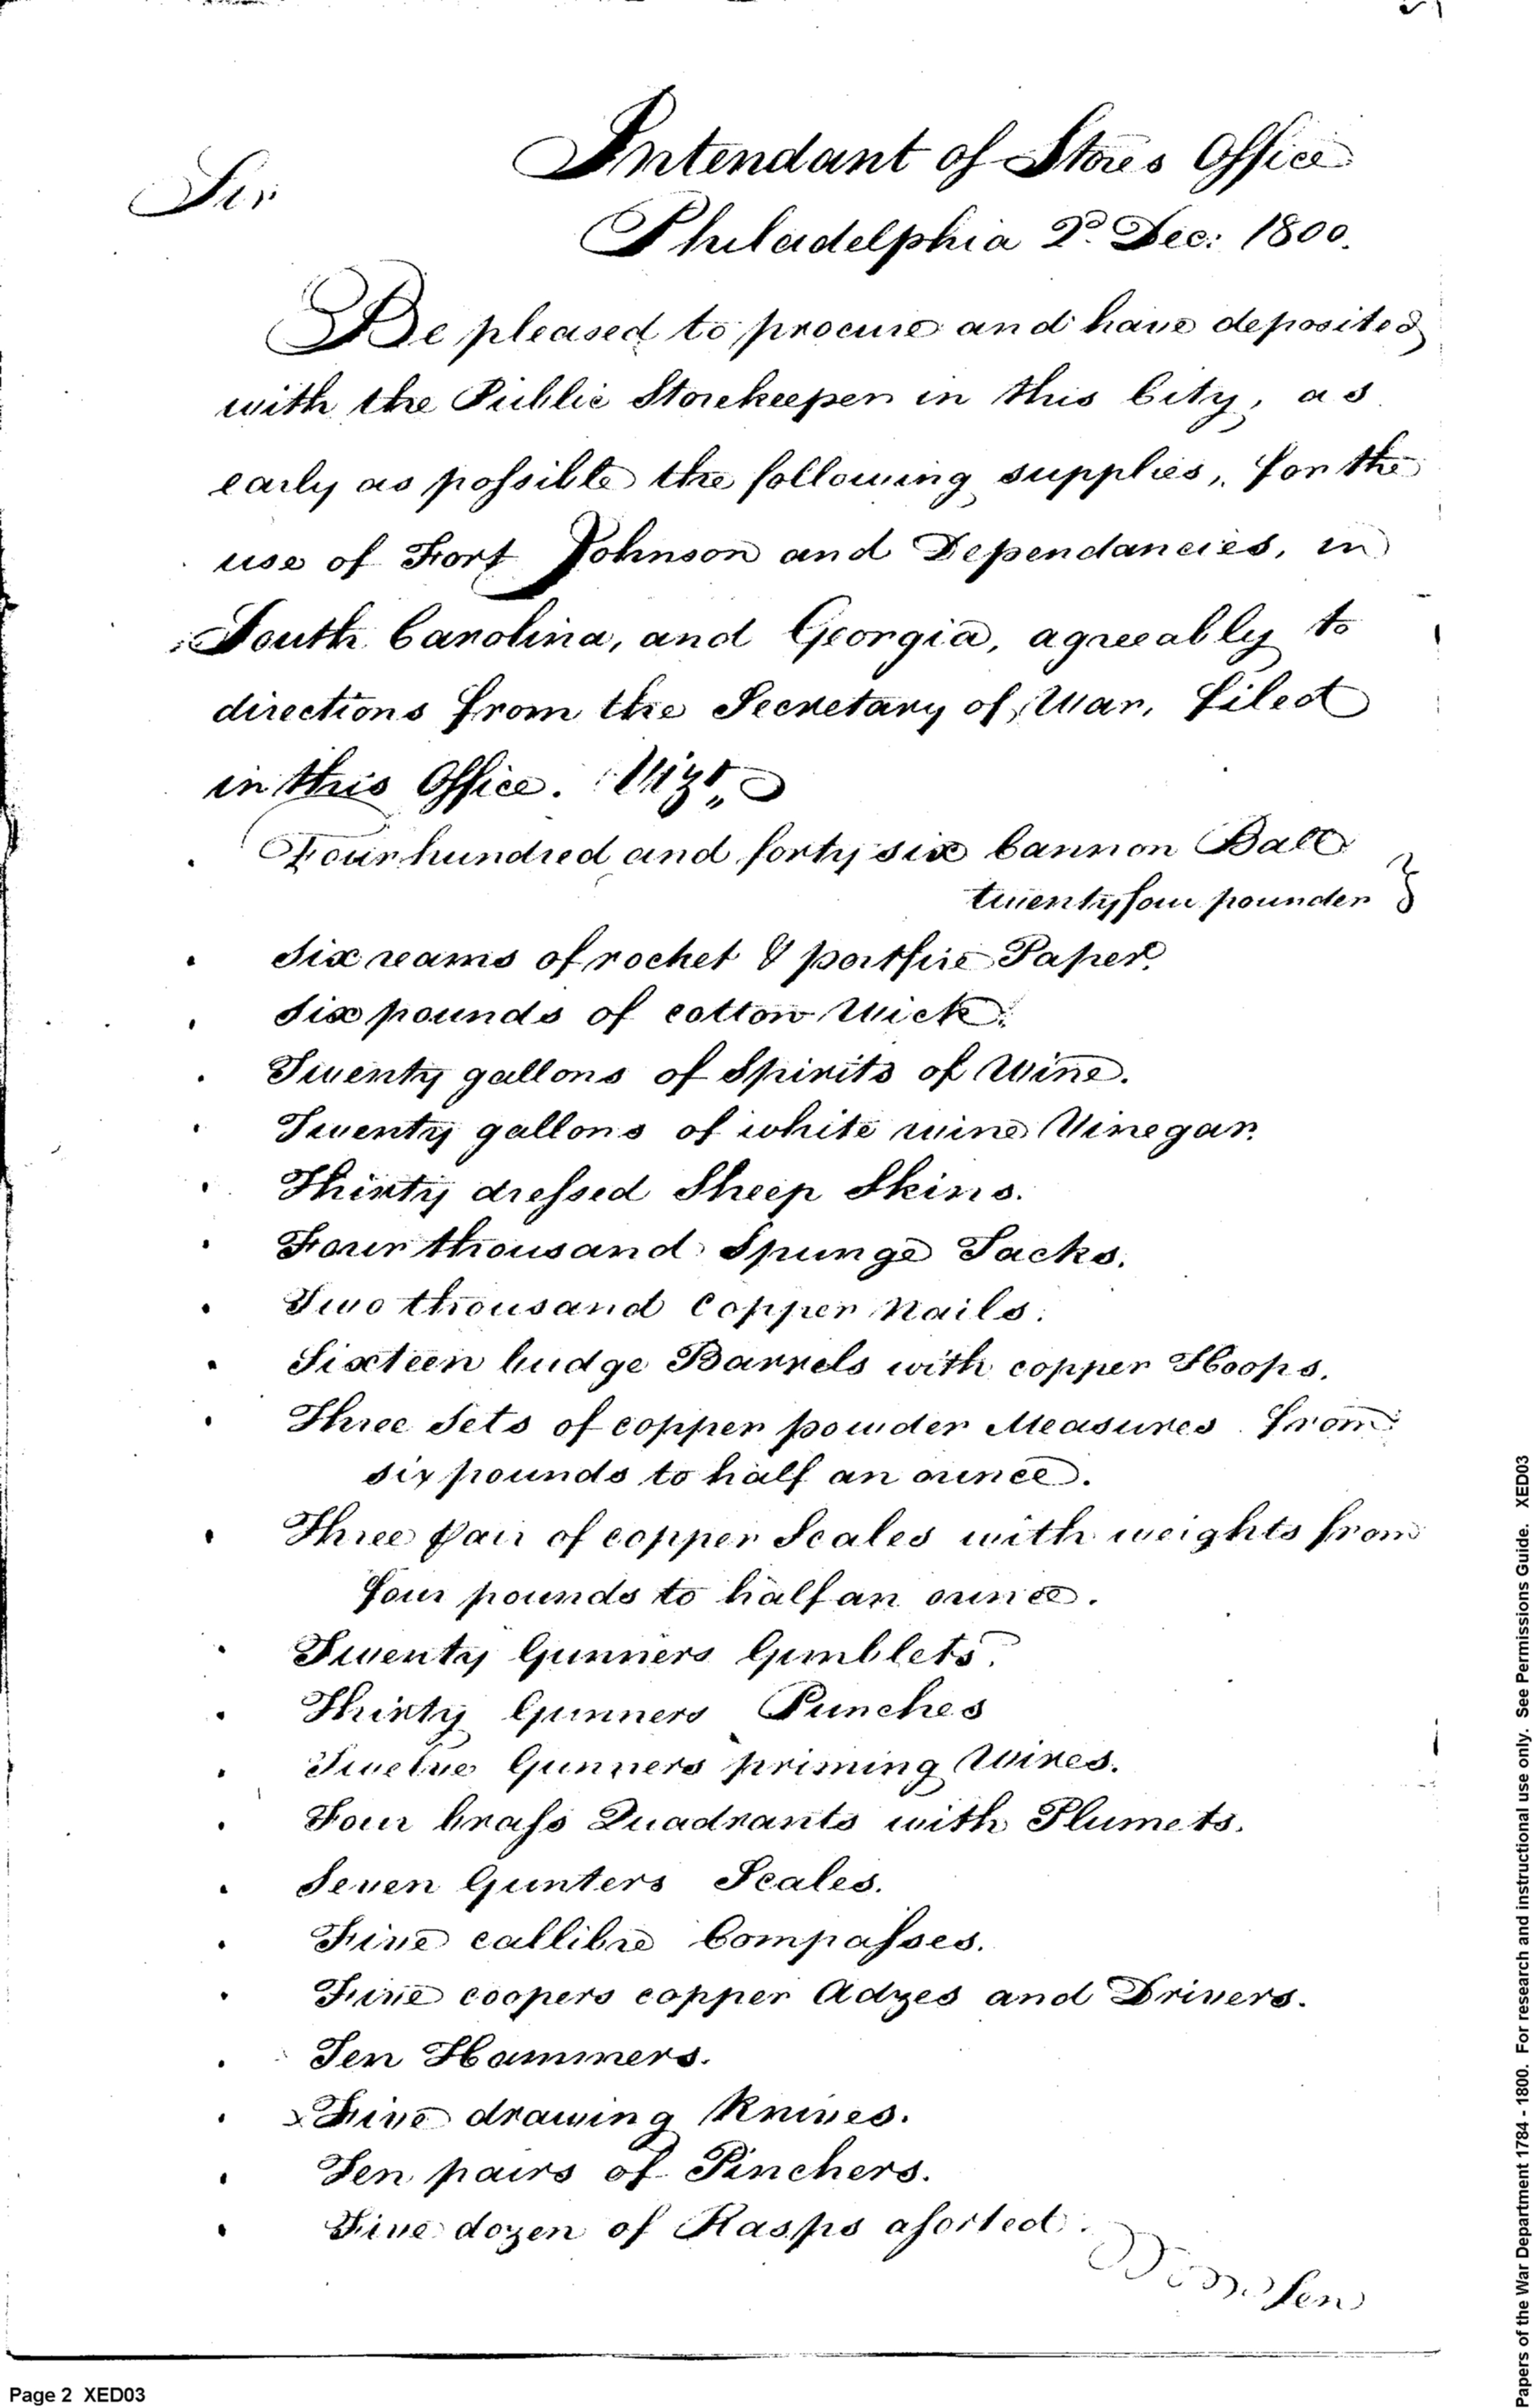 Intendant of Stores Office
Sir
Philadelphia 2d. Dec: 1800.
Be pleased to procure and have deposited
with the Public Storekeeper in this City, as
early as possible the following supplies, for the
use of Fort Johnson and Dependancies, in
South Carolina, and Georgia, agreeably to
directions from the Secretary of War, filed
in this Office. Vizt,,
Four hundred and forty six Cannon Ball
twenty four pounder }
Six reams of rocket & portfire Paper.
Six pounds of cotton Wick.
Twenty gallons of Spirits of Wine.
Twenty gallons of white wine Vinegar.
Thirty dressed Sheep Skins.
Four thousand Spunge Tacks.
Two thousand Copper Nails.
Sixteen budge Barrels with copper Hoops.
Three Sets of copper powder Measures from
six pounds to half an ounce.
Three pair of copper Scales with weights from
four pounds to half an ounce.
Twenty Gunners Gimblets.
Thirty Gunners Punches
Twelve Gunners priming Wires.
Four brass Quadrants with Plumets.
Seven Gunters Scales.
Five callibre Compasses.
Five coopers copper Adzes and Drivers.
Ten Hammers.
x Five drawing Knives.
Ten pairs of Pinchers.
Five dozen of Rasps asorted.
Page 2 XED03
Papers of the War Department 1784 - 1800. For research and instructional use only. See Permissions Guide. XED03